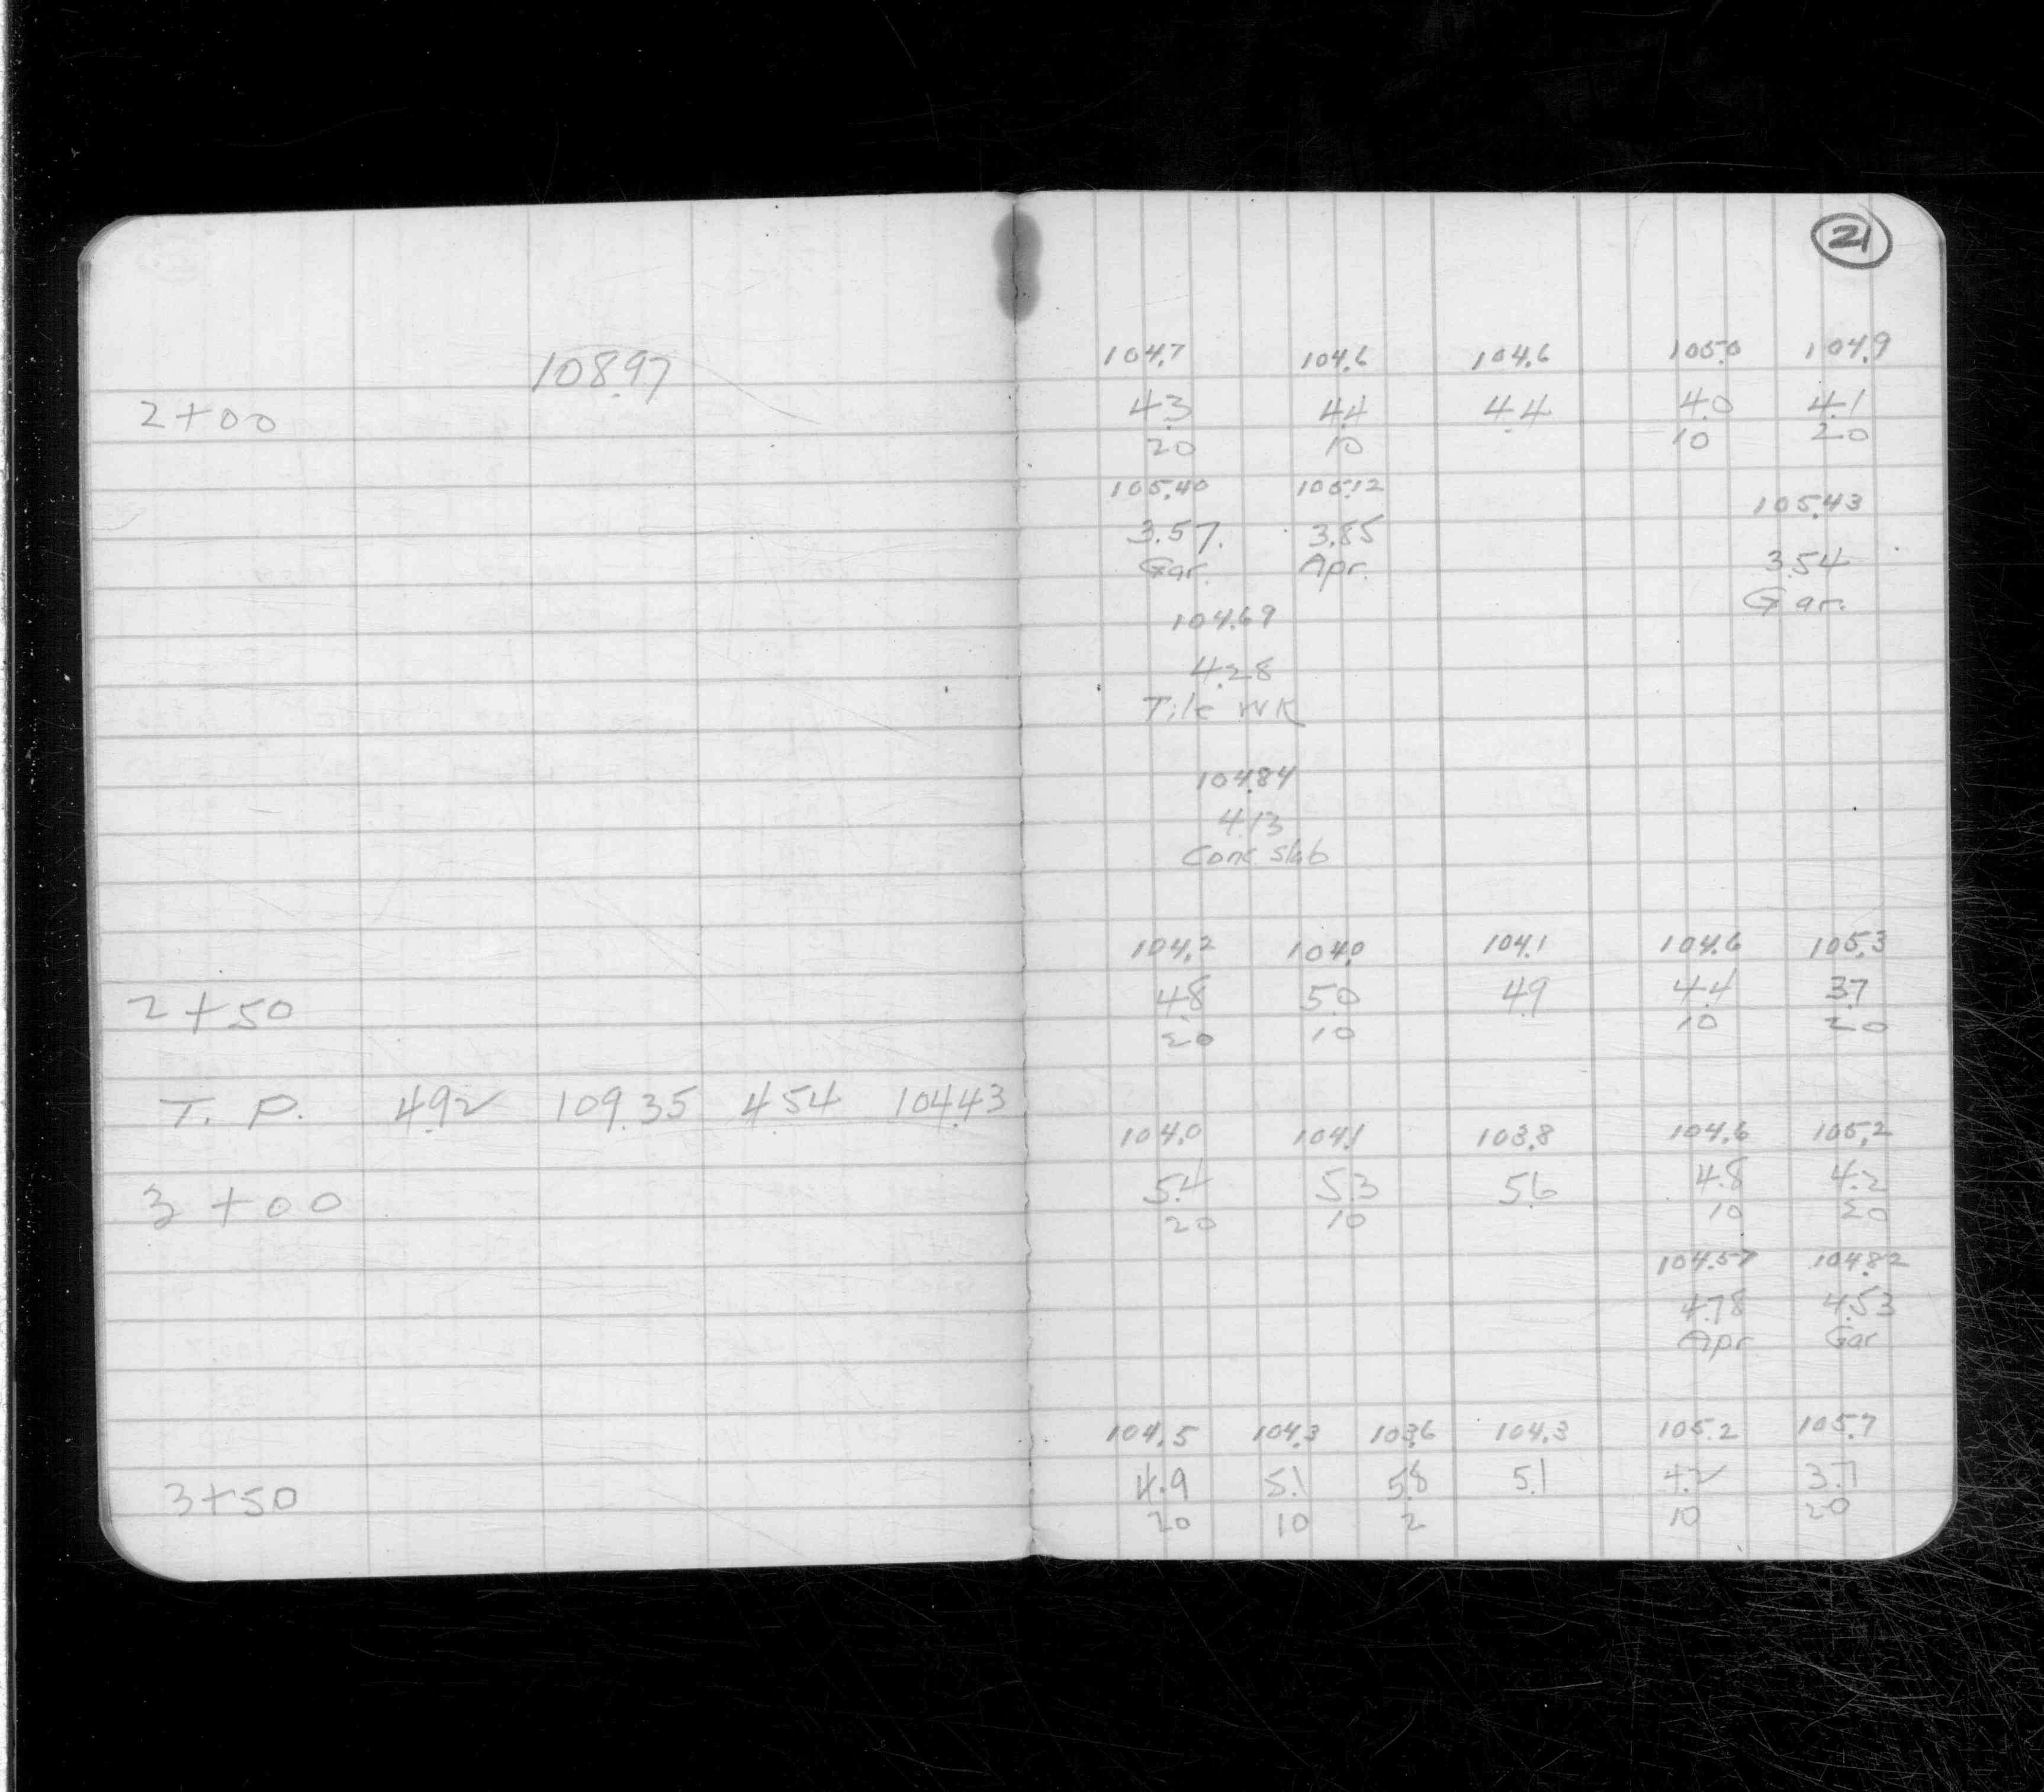 21
108.97
104.7 104.6 104.6 105.0 104.9
2+00 4.3 4.4 4.4 4.0 4.1
20 10 10 20
105.40 105.12 105.43
3.57 3.85 3.54
Gar. Apr. Gar.
104.69
4.28
Tile WK
104.84
4.13
Conc Slab
104.2 104.0 104.1 104.6 105.3
2+50 4.8 5.0 4.9 4.4 3.7
20 10 10 20
T. P. 4.92 109.35 4.54 104.43
104.0 104.1 103.8 104.6 105.2
3+00 5.4 5.3 5.6 4.8 4.2
20 10 10 20
104.57 104.82
4.78 4.53
Apr Gar
104.5 104.3 103.6 104.3 105.2 105.7
3+50 4.9 5.1 5.8 5.1 4.2 3.7
20 10 2 10 20